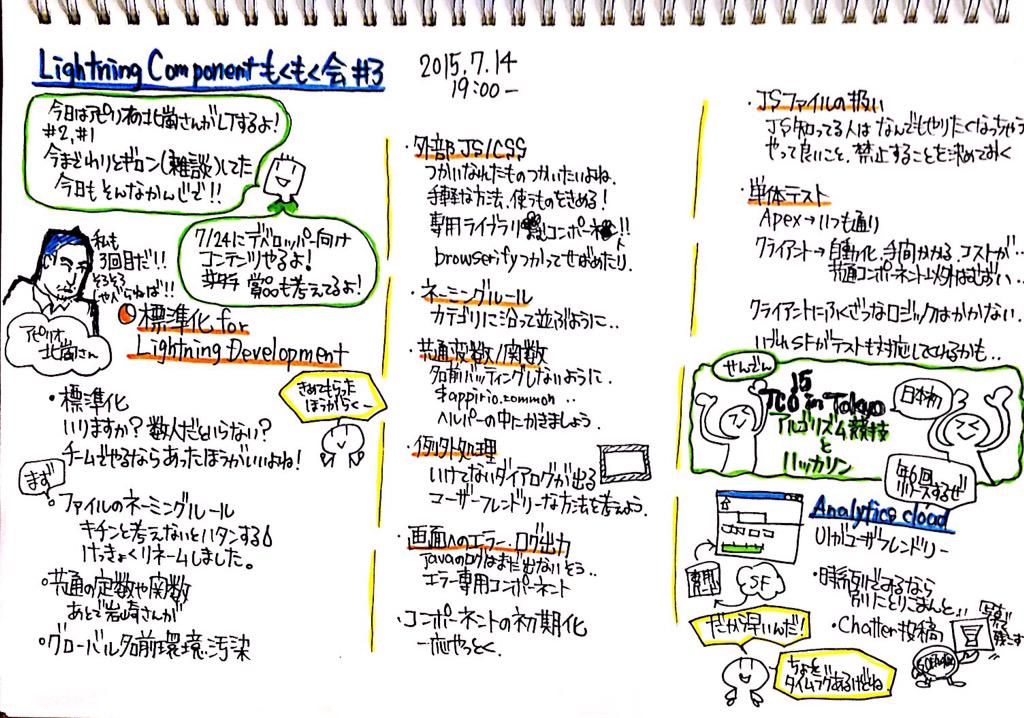 Lightning Component もくもく会 #3
2015.7.14
19:00～
今日はアピリオの北嵐さんがLTするよ!
#2, #1
今までわりとギロン(雑談)してた
今日もそんなかんじで!!
7/24にデベロッパー向け
コンテンツやるよ!
賞品も考えてるよ!
私も
3回目だ!!
そろそろ
しゃべらねば!!
アピリオ
北嵐さん
標準化 for
Lightning Development
・標準化
いりますか? 数人だといらない?
チームでやるならあったほうがいいよね!
きめてもらった
ほうがらく～
まず
ファイルのネーミングルール
キチンと考えないとハタンする
けっきょくリネームしました。
共通の定数や関数
あとで岩崎さんが
グローバル名前環境汚染
・外部JS/CSS
つかいなれたものつかいたいよね、
手軽な方法、使うものをきめる!
専用ライブラリ コンポーネ!!
browserifyつかってせばめたり.
・ネーミングルール
カテゴリに沿って並ぶように..
・共通変数/関数
名前バッティングしないように.
$appirio.common ..
ヘルパーの中にかきましょう.
・例外処理
いけてないダイアログが出る
ユーザーフレンドリーな方法を考えよう.
・画面へのエラー、ログ出力
Javaのログはまだ出ないそう..
エラー専用コンポーネント
・コンポーネントの初期化
一応やっとく.
・JSファイルの扱い
JS知ってる人はなんでもやりたくなっちゃう
やって良いこと、禁止することを決めておく
・単体テスト
Apex→いつも通り
クライアント→自動化、手間かかる コストが…
共通コンポーネント以外はむずい…
クライアントにふくざつなロジックはかかない.
いずれSFがテストも対応してくれるかも..
せんでん
15
TCO in Tokyo
アルゴリズム競技
と
ハッカソン
日本初
年6回
リリースするぜ
Analytics cloud
UIがユーザフレンドリー
専用
SF
・時系列でみるなら
別にとりこまんと..
・Chatter投稿
写真で
残す
だから早いんだ!
ちょと
タイムラグあるけどね.